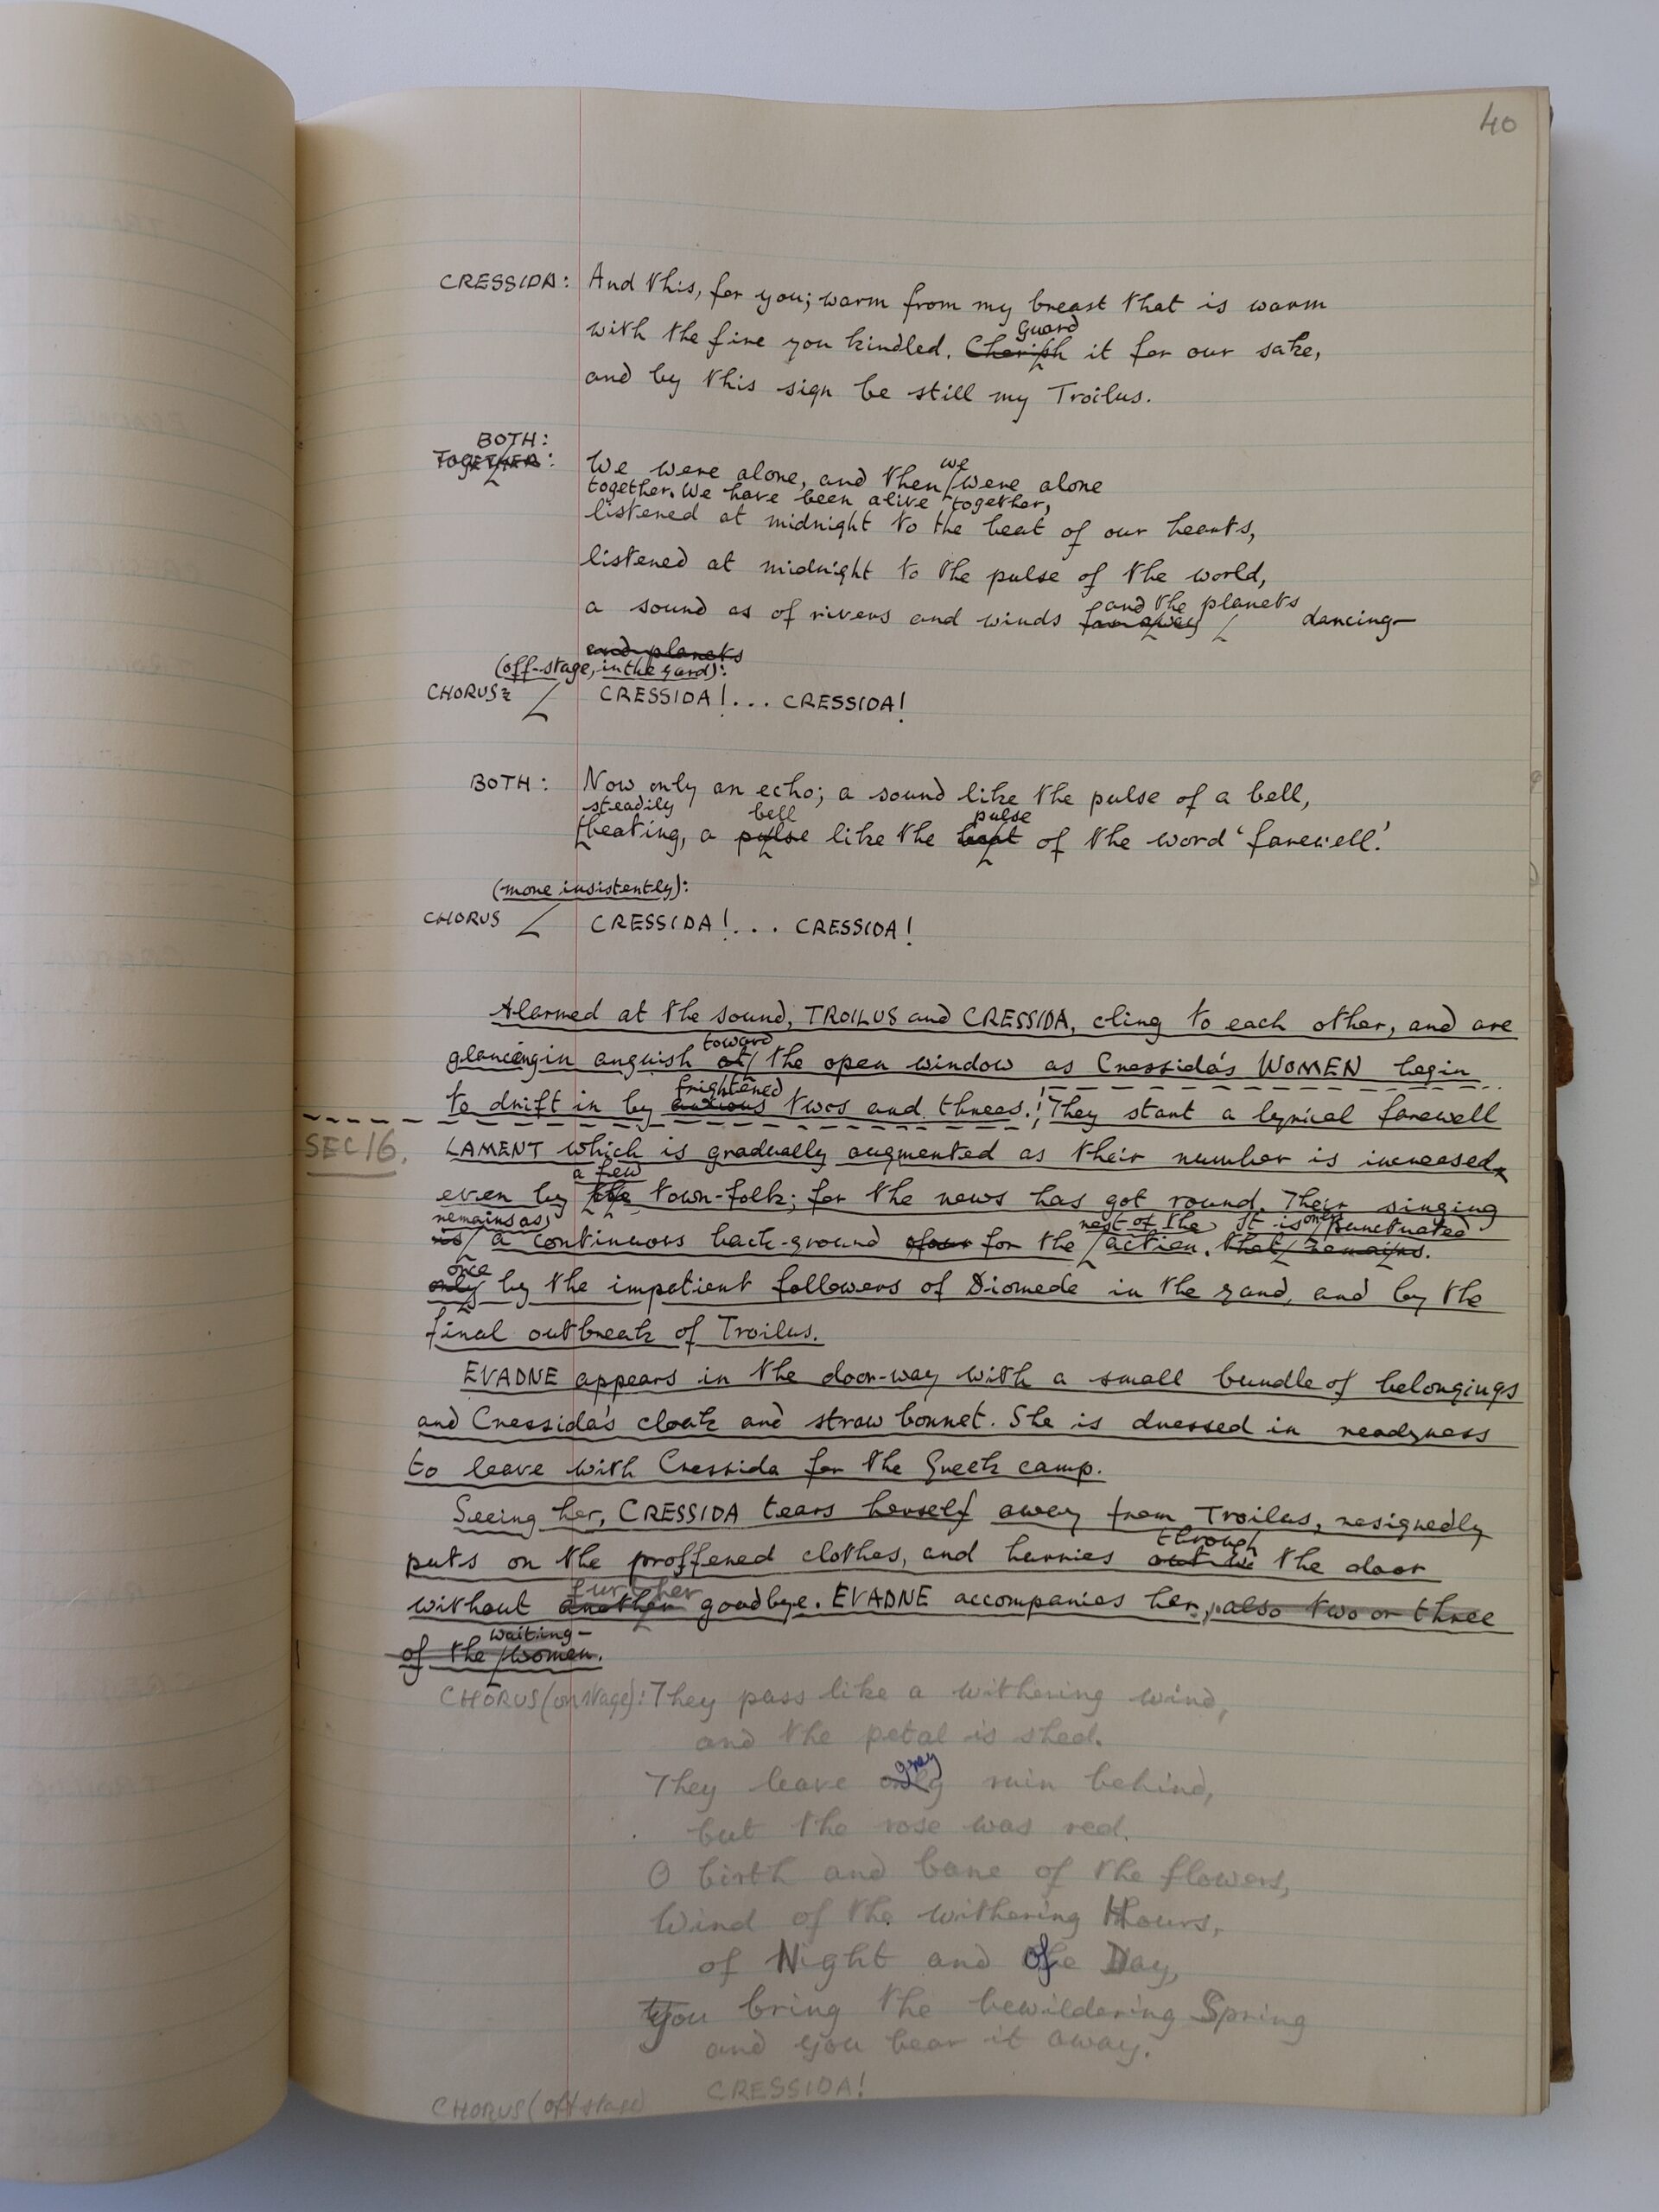 40
CRESSIDA: And this, for you; warm from my breast that is warm
Guard
with the fire you kindled. Cherish it for our sake,
and by this sign be still my Troilus.
BOTH:
TOGETHER: We were alone, and then we were alone
together. We have been alive together,
listened at midnight to the beat of our hearts,
listened at midnight to the pulse of the world,
and the planets
a sound as of rivers and winds far away dancing—
and planets
(off-stage, in the yard):
CHORUS: CRESSIDA!... CRESSIDA!
BOTH: Now only an echo; a sound like the pulse of a bell,
steadily bell pulse
beating, a pulse like the beat of the word 'farewell.'
(more insistently):
CHORUS CRESSIDA!... CRESSIDA!
Alarmed at the sound, TROILUS and CRESSIDA, cling to each other, and are
toward
glancing in anguish at the open window as Cressida's WOMEN begin
frightened
to drift in by anxious twos and threes. They start a lyrical farewell
SEC 16. LAMENT which is gradually augmented as their number is increased
a few
even by the town-folk; for the news has got round. Their singing
remains as rest of the It is only punctuated
is a continuous back-ground for the action. that remains.
once
only by the impatient followers of Diomede in the yard, and by the
final outbreak of Troilus.
EVADNE appears in the door-way with a small bundle of belongings
and Cressida's cloak and straw bonnet. She is dressed in readyness
to leave with Cressida for the Greek camp.
Seeing her, CRESSIDA tears herself away from Troilus, resignedly
through
puts on the proffered clothes, and hurries out the door
further
without another goodbye. EVADNE accompanies her, also two or three
waiting-
of the women.
CHORUS (on stage): They pass like a withering wind,
and the petal is shed.
gray
They leave only ruin behind,
but the rose was red.
O birth and bane of the flowers,
Wind of the withering Hours,
of Night and of Day,
You bring the bewildering Spring
and you bear it away.
CHORUS (off stage) CRESSIDA!